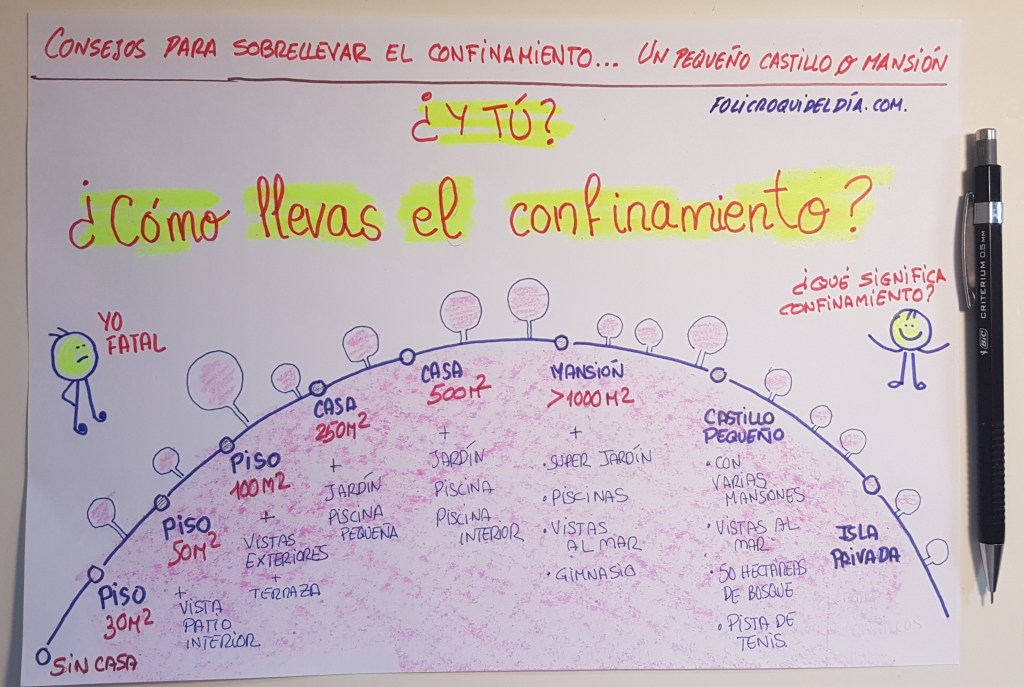 CONSEJOS PARA SOBRELLEVAR EL CONFINAMIENTO... UN PEQUEÑO CASTILLO O MANSIÓN
FOLICROQUIDELDÍA.COM.
¿Y TÚ?
¿Cómo llevas el confinamiento?
YO
FATAL
¿QUÉ SIGNIFICA
CONFINAMIENTO?
SIN CASA
PISO
30M2
PISO
50M2
+
VISTA
PATIO
INTERIOR
PISO
100M2
+
VISTAS
EXTERIORES
+
TERRAZA
CASA
250M2
+
JARDÍN
PISCINA
PEQUEÑA
CASA
500M2
+
JARDÍN
PISCINA
PISCINA
INTERIOR
MANSIÓN
>1000M2
+
• SUPER JARDÍN
• PISCINAS
• VISTAS
AL MAR
• GIMNASIO
CASTILLO
PEQUEÑO
• CON
VARIAS
MANSIONES
• VISTAS AL
MAR
• 50 HECTAREAS
DE BOSQUE
• PISTA DE
TENIS
ISLA
PRIVADA
BIC CRITERIUM 0.5 MM